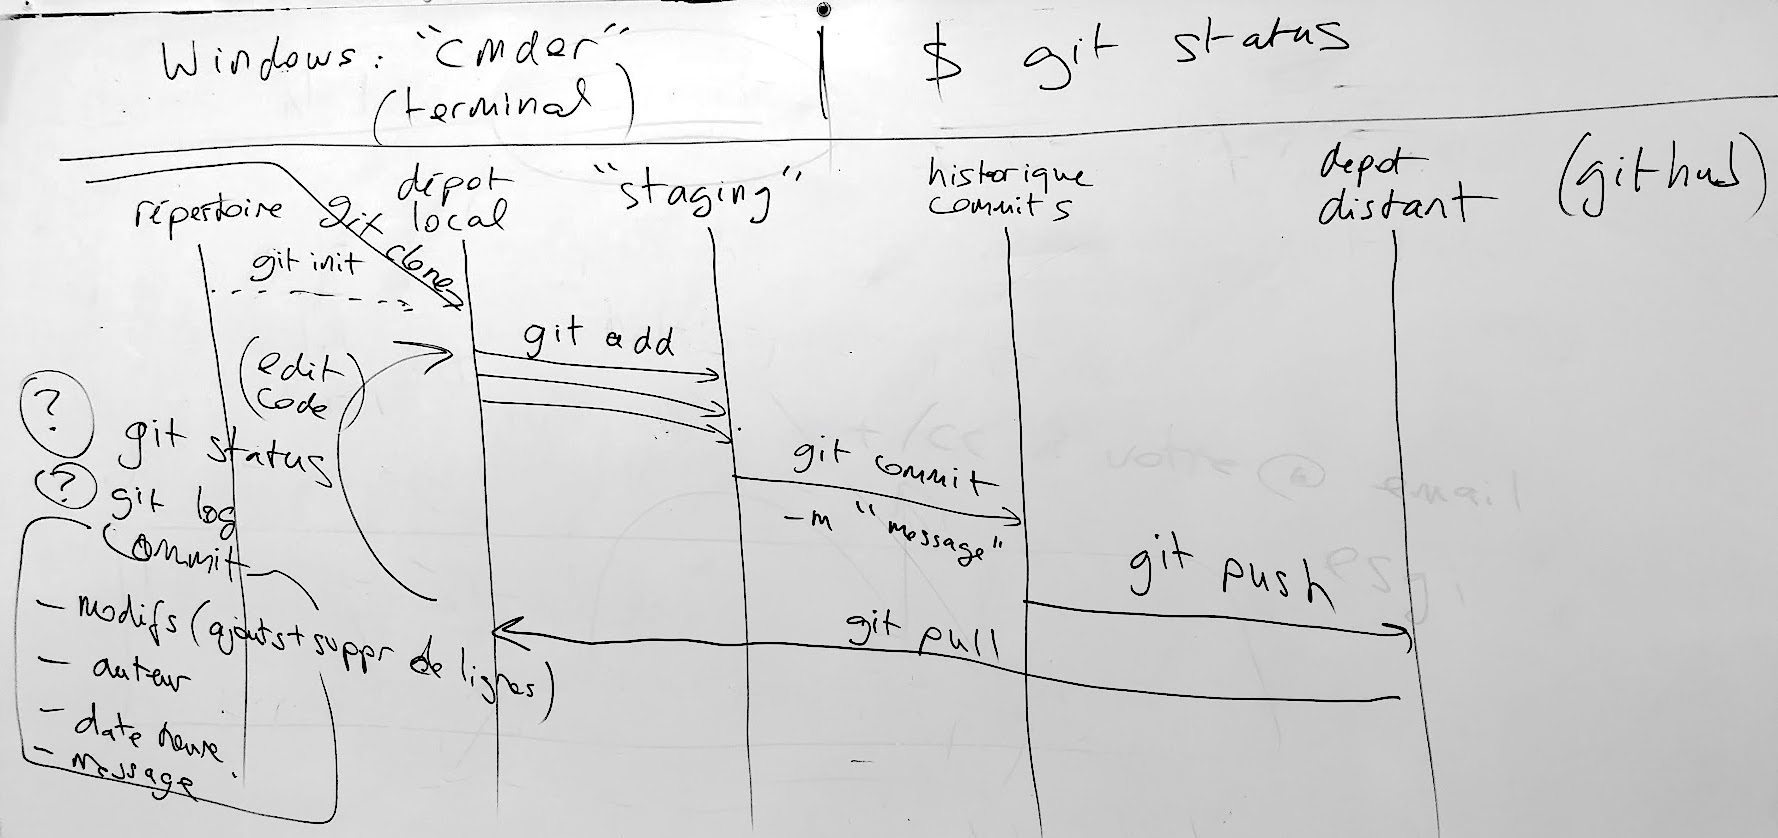 Windows : "cmder"
(terminal)
$ git status
répertoire
dépôt
local
"staging"
historique
commits
depot
distant
(github)
git clone
git init
(edit
code)
git add
?
git status
?
git log
git commit
-m "message"
git push
git pull
Commit
- modifs (ajouts + suppr de lignes)
- auteur
- date heure
- message
votre @ email